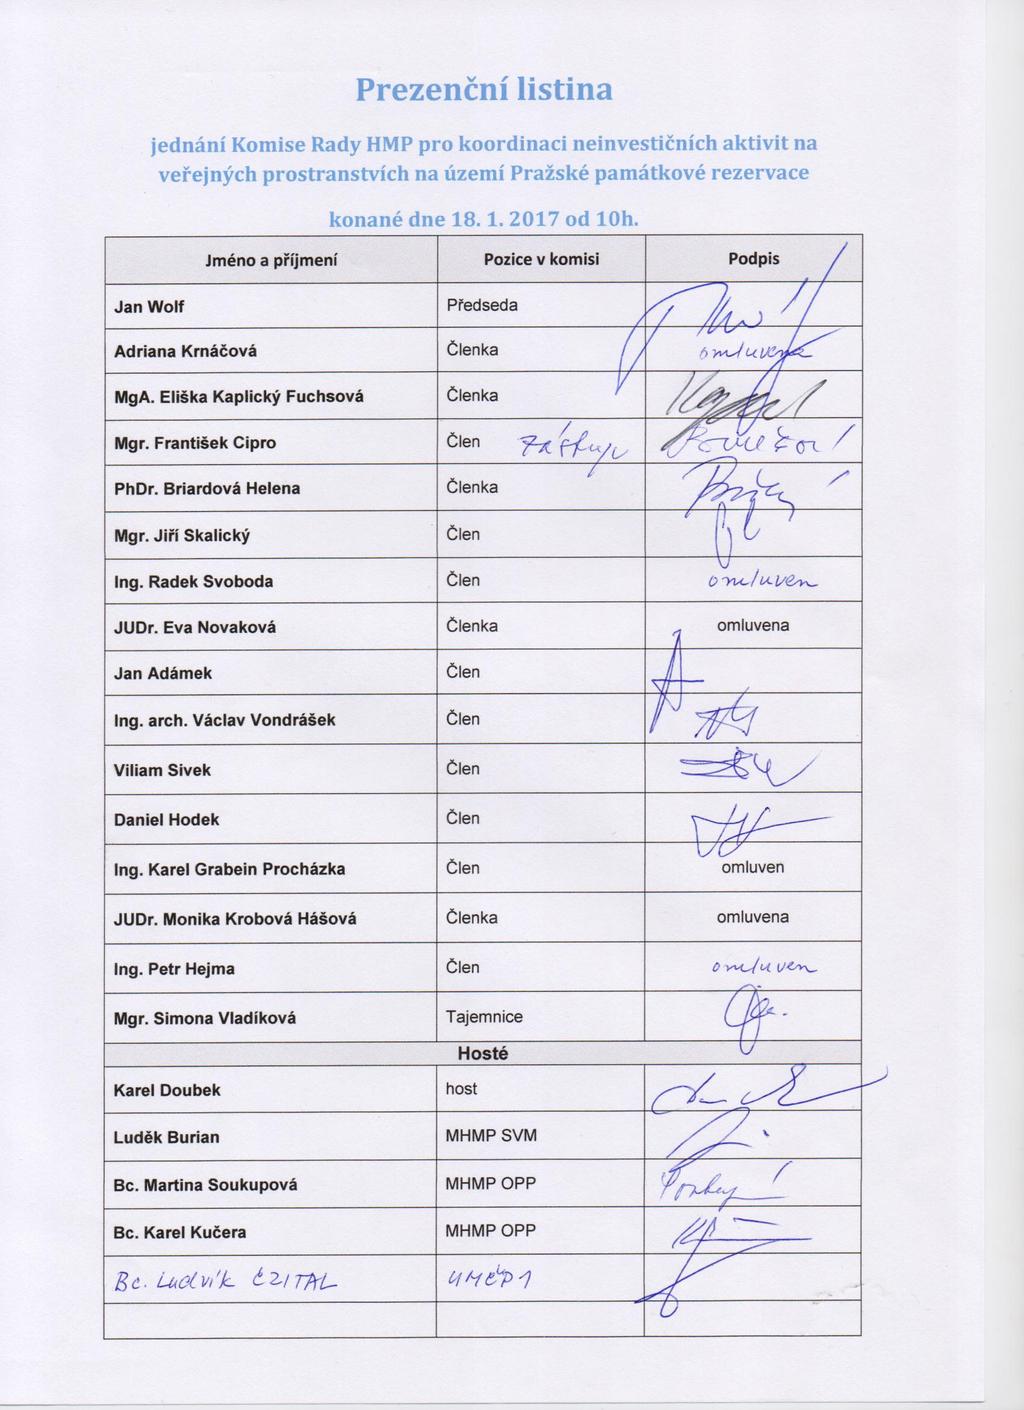 Prezenční listina
jednání Komise Rady HMP pro koordinaci neinvestičních aktivit na
veřejných prostranstvích na území Pražské památkové rezervace
konané dne 18. 1. 2017 od 10h.
Jméno a příjmení Pozice v komisi Podpis
Jan Wolf Předseda
Adriana Krnáčová Členka omluvena
MgA. Eliška Kaplický Fuchsová Členka
Mgr. František Cipro Člen
PhDr. Briardová Helena Členka
Mgr. Jiří Skalický Člen
Ing. Radek Svoboda Člen omluven
JUDr. Eva Novaková Členka omluvena
Jan Adámek Člen
Ing. arch. Václav Vondrášek Člen
Viliam Sivek Člen
Daniel Hodek Člen
Ing. Karel Grabein Procházka Člen omluven
JUDr. Monika Krobová Hášová Členka omluvena
Ing. Petr Hejma Člen omluven
Mgr. Simona Vladíková Tajemnice
Hosté
Karel Doubek host
Luděk Burian MHMP SVM
Bc. Martina Soukupová MHMP OPP
Bc. Karel Kučera MHMP OPP
Bc. Ludvík CZITAL ÚMČP1